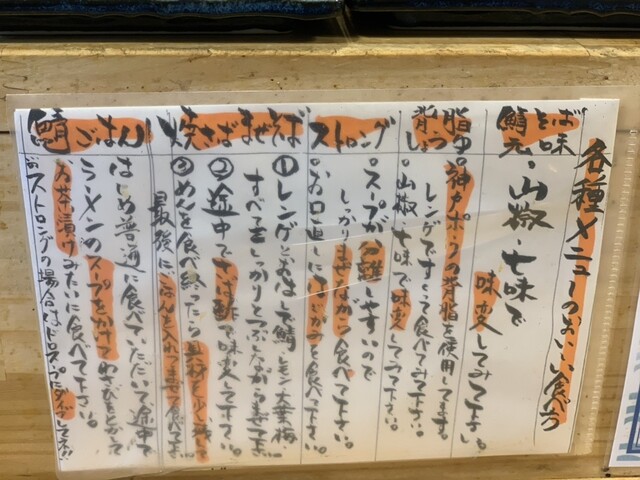 各種メニューのおいしい食べ方
鯖そば
元味
・山椒・七味で
味変してみて下さい。
背脂
しょうゆ
中。神戸ポークの背脂を使用してます。
レンゲですくって食べてみて下さい。
。山椒、七味で味変してみて下さい。
ストロング
。スープが分離しやすいので
しっかりまぜながら食べて下さい。
。お口直しにはじかみを食べて下さい。
焼さばまぜそば
①レンゲとおはしで鯖・レモン・大葉・梅・
すべてをしっかりとつぶしながらまぜて下さい
②途中でさば酢で味変して下さい。
③めんを食べ終ったら具材を少し残して
最後にごはんを入れてまぜて食べて下さい
鯖ごはん
はじめ普通に食べていただいて途中で
ラーメンのスープをかけてわさびをとかして
お茶漬けみたいに食べて下さい。
※ストロングの場合はドロスープにダイブしてネ!!